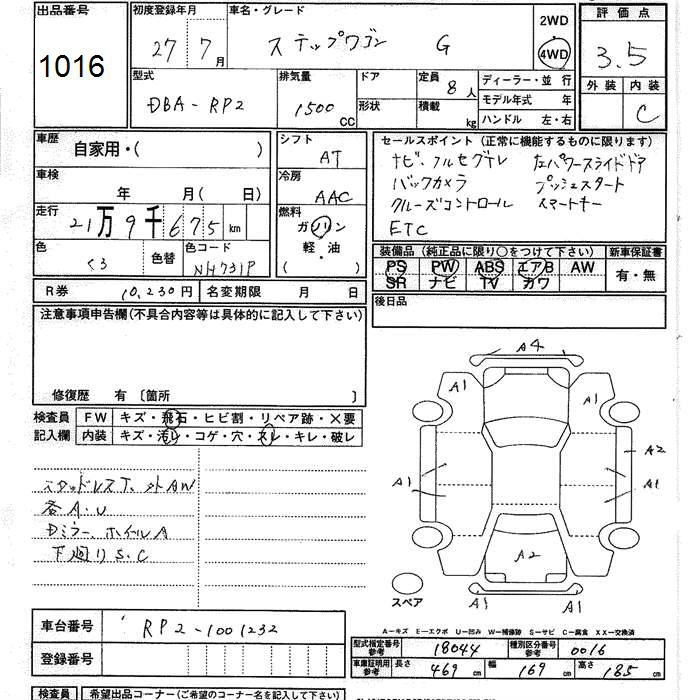 出品番号 1016
初度登録年月 27年 7月
車名・グレード ステップワゴン G
2WD
4WD
評価点 3.5
外装 内装 C
型式 DBA-RP2
排気量 1500 CC
ドア
形状
定員 8人
積載 kg
ディーラー・並 行
モデル年式 年
ハンドル 左・右
車歴 自家用・( )
車検 年 月( 日)
走行 21万9千675km
色 くろ 色替
色コード NH731P
シフト AT
冷房 AAC
燃料 ガソリン
軽・油
( )
セールスポイント (正常に機能するものに限ります)
ナビ、フルセグTV 左パワースライドドア
バックカメラ プッシュスタート
クルーズコントロール スマートキー
ETC
装備品 (純正品に限り○をつけて下さい) 新車保証書
PS PW ABS エアB AW 有・無
SR ナビ TV カワ
後日品
R券 10,230円 名変期限 月 日
注意事項申告欄(不具合内容等は具体的に記入して下さい)
修復歴 有 〔箇所 〕
検査員 FW キズ・飛石・ヒビ割・リペア跡・×要
記入欄 内装 キズ・汚レ・コゲ・穴・スレ・キレ・破レ
スタッドレスT、外AW
各A.U
Dミラー、ホイルA
下廻りS.C
A4
A1 A1
A2
A1 A1
A2
A1 A1
スペア
A-キズ E-エクボ U-凹み W-補修跡 S-サビ C-腐食 XX-交換済
車台番号 RP2-1001232
登録番号
型式指定番号 参考 18044 種別区分番号 参考 0016
車庫証明用 参考 長さ 469cm 幅 169cm 高さ 185cm
検査員 希望出品コーナー(ご希望のコーナー名を記入下さい)